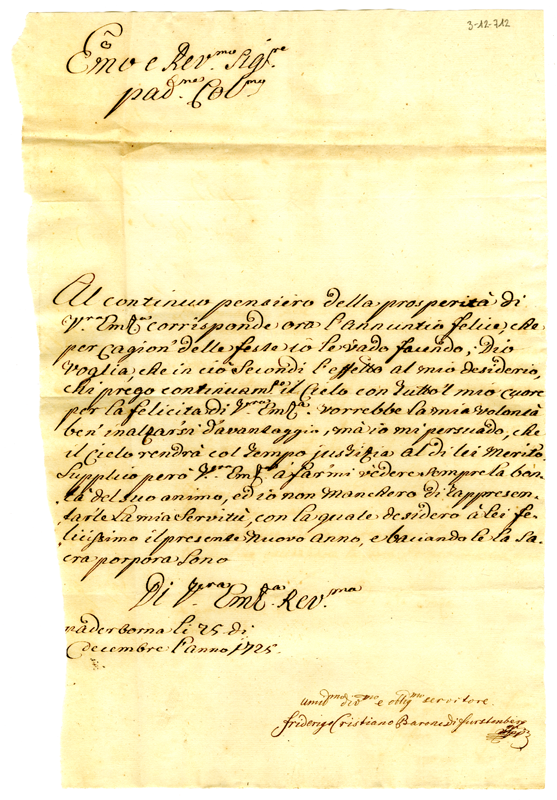 3-12-712
Em̃o e Rev.mo Sig.re
pad.ne Col.mo
Al continuo pensiero della prosperità di
V.ra Em.za corrisponde ora l'annuntio felice, che
per cagion' delle feste io le vado facendo; Dio
voglia, che in ciò secondi l'effetto al mio desiderio,
chi prego continuam.te il Cielo con tutto'l mio cuore
per la felicita di V.ra Em.za. vorrebbe la mia volontà
ben' inalzarsi d'avantaggio, mà io mi persuado, che
il Cielo rendrà col tempo justitia al di lei merito.
Supplico però V.ra Em.za à farmi vedere sempre la bon-
tà del suo animo, ed io non mancherò di rappresen-
tarle la mia servitù, con la quale desidero à lei fe-
licissimo il presente nuovo anno, e baciandole la sa-
cra porpora sono
Di V.ra Em.za Rev.ma
paderborna li 25 di
decembre l'anno 1725.
umil.mo div.mo e obllig.mo servitore.
friderigo Cristiano Barone di furstenberg